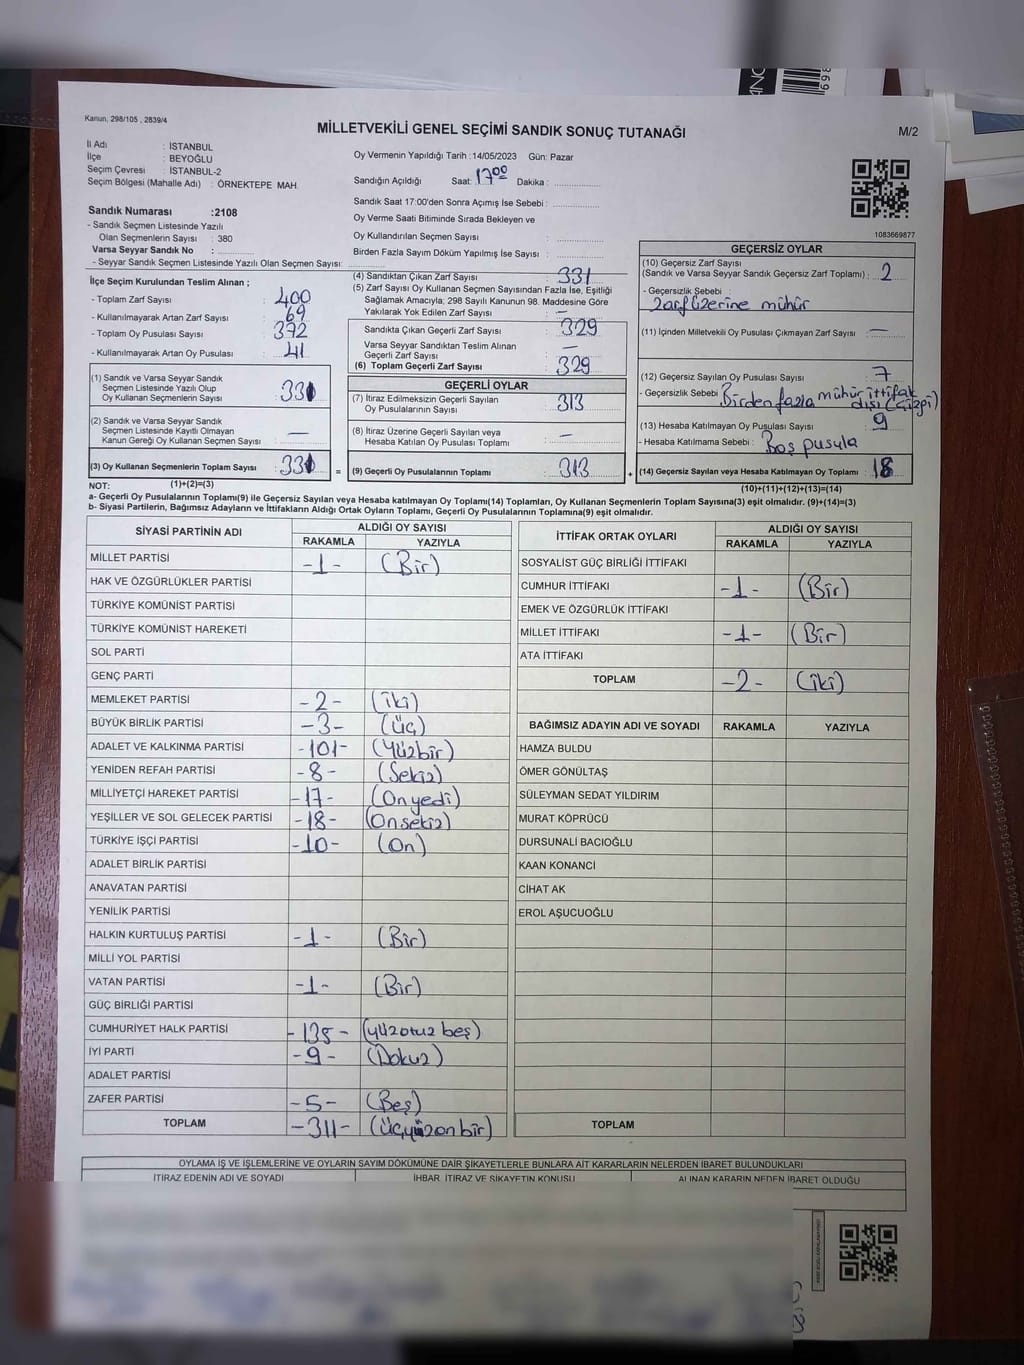 Kanun, 298/105 , 2839/4
MİLLETVEKİLİ GENEL SEÇİMİ SANDIK SONUÇ TUTANAĞI
M/2
İl Adı : İSTANBUL
İlçe : BEYOĞLU
Seçim Çevresi : İSTANBUL-2
Seçim Bölgesi (Mahalle Adı) : ÖRNEKTEPE MAH.
Sandık Numarası :2108
- Sandık Seçmen Listesinde Yazılı
Olan Seçmenlerin Sayısı : 380
Varsa Seyyar Sandık No :
- Seyyar Sandık Seçmen Listesinde Yazılı Olan Seçmen Sayısı:
Oy Vermenin Yapıldığı Tarih :14/05/2023 Gün: Pazar
Sandığın Açıldığı Saat: 17 00 Dakika :
Sandık Saat 17:00'den Sonra Açımış İse Sebebi :
Oy Verme Saati Bitiminde Sırada Bekleyen ve
Oy Kullandırılan Seçmen Sayısı :
Birden Fazla Sayım Döküm Yapılmış İse Sayısı :
1083669877
İlçe Seçim Kurulundan Teslim Alınan ;
- Toplam Zarf Sayısı : 400
- Kullanılmayarak Artan Zarf Sayısı : 69
- Toplam Oy Pusulası Sayısı : 372
- Kullanılmayarak Artan Oy Pusulası : 41
(1) Sandık ve Varsa Seyyar Sandık
Seçmen Listesinde Yazılı Olup
Oy Kullanan Seçmenlerin Sayısı : 331
(2) Sandık ve Varsa Seyyar Sandık
Seçmen Listesinde Kayıtlı Olmayan
Kanun Gereği Oy Kullanan Seçmen Sayısı : —
(3) Oy Kullanan Seçmenlerin Toplam Sayısı : 331
(1)+(2)=(3)
(4) Sandıktan Çıkan Zarf Sayısı : 331
(5) Zarf Sayısı Oy Kullanan Seçmen Sayısından Fazla İse, Eşitliği
Sağlamak Amacıyla; 298 Sayılı Kanunun 98. Maddesine Göre
Yakılarak Yok Edilen Zarf Sayısı : —
Sandıkta Çıkan Geçerli Zarf Sayısı : 329
Varsa Seyyar Sandıktan Teslim Alınan
Geçerli Zarf Sayısı : —
(6) Toplam Geçerli Zarf Sayısı : 329
GEÇERLİ OYLAR
(7) İtiraz Edilmeksizin Geçerli Sayılan
Oy Pusulalarının Sayısı : 313
(8) İtiraz Üzerine Geçerli Sayılan veya
Hesaba Katılan Oy Pusulası Toplamı : —
= (9) Geçerli Oy Pusulalarının Toplamı : 313
GEÇERSİZ OYLAR
(10) Geçersiz Zarf Sayısı
(Sandık ve Varsa Seyyar Sandık Geçersiz Zarf Toplamı) : 2
- Geçersizlik Sebebi :
Zarf üzerine mühür
(11) İçinden Milletvekili Oy Pusulası Çıkmayan Zarf Sayısı : —
(12) Geçersiz Sayılan Oy Pusulası Sayısı : 7
- Geçersizlik Sebebi : Birden fazla mühür ittifak
dışı (çizgi)
(13) Hesaba Katılmayan Oy Pusulası Sayısı : 9
- Hesaba Katılmama Sebebi : Boş pusula
+ (14) Geçersiz Sayılan veya Hesaba Katılmayan Oy Toplamı : 18
(10)+(11)+(12)+(13)=(14)
NOT:
a- Geçerli Oy Pusulalarının Toplamı(9) ile Geçersiz Sayılan veya Hesaba katılmayan Oy Toplamı(14) Toplamları, Oy Kullanan Seçmenlerin Toplam Sayısına(3) eşit olmalıdır. (9)+(14)=(3)
b- Siyasi Partilerin, Bağımsız Adayların ve İttifakların Aldığı Ortak Oyların Toplamı, Geçerli Oy Pusulalarının Toplamına(9) eşit olmalıdır.
SİYASİ PARTİNİN ADI ALDIĞI OY SAYISI
RAKAMLA YAZIYLA
MİLLET PARTİSİ -1- (Bir)
HAK VE ÖZGÜRLÜKLER PARTİSİ
TÜRKİYE KOMÜNİST PARTİSİ
TÜRKİYE KOMÜNİST HAREKETİ
SOL PARTİ
GENÇ PARTİ
MEMLEKET PARTİSİ -2- (iki)
BÜYÜK BİRLİK PARTİSİ -3- (üç)
ADALET VE KALKINMA PARTİSİ -101- (Yüzbir)
YENİDEN REFAH PARTİSİ -8- (Sekiz)
MİLLİYETÇİ HAREKET PARTİSİ -17- (Onyedi)
YEŞİLLER VE SOL GELECEK PARTİSİ -18- (Onsekiz)
TÜRKİYE İŞÇİ PARTİSİ -10- (On)
ADALET BİRLİK PARTİSİ
ANAVATAN PARTİSİ
YENİLİK PARTİSİ
HALKIN KURTULUŞ PARTİSİ -1- (Bir)
MİLLİ YOL PARTİSİ
VATAN PARTİSİ -1- (Bir)
GÜÇ BİRLİĞİ PARTİSİ
CUMHURİYET HALK PARTİSİ -135- (yüzotuz beş)
İYİ PARTİ -9- (Dokuz)
ADALET PARTİSİ
ZAFER PARTİSİ -5- (Beş)
TOPLAM -311- (üçyüzonbir)
İTTİFAK ORTAK OYLARI ALDIĞI OY SAYISI
RAKAMLA YAZIYLA
SOSYALİST GÜÇ BİRLİĞİ İTTİFAKI
CUMHUR İTTİFAKI -1- (Bir)
EMEK VE ÖZGÜRLÜK İTTİFAKI
MİLLET İTTİFAKI -1- (Bir)
ATA İTTİFAKI
TOPLAM -2- (iki)
BAĞIMSIZ ADAYIN ADI VE SOYADI RAKAMLA YAZIYLA
HAMZA BULDU
ÖMER GÖNÜLTAŞ
SÜLEYMAN SEDAT YILDIRIM
MURAT KÖPRÜCÜ
DURSUNALİ BACIOĞLU
KAAN KONANCİ
CİHAT AK
EROL AŞUCUOĞLU
TOPLAM
OYLAMA İŞ VE İŞLEMLERİNE VE OYLARIN SAYIM DÖKÜMÜNE DAİR ŞİKAYETLERLE BUNLARA AİT KARARLARIN NELERDEN İBARET BULUNDUKLARI
İTİRAZ EDENİN ADI VE SOYADI İHBAR, İTİRAZ VE ŞİKAYETİN KONUSU ALINAN KARARIN NEDEN İBARET OLDUĞU